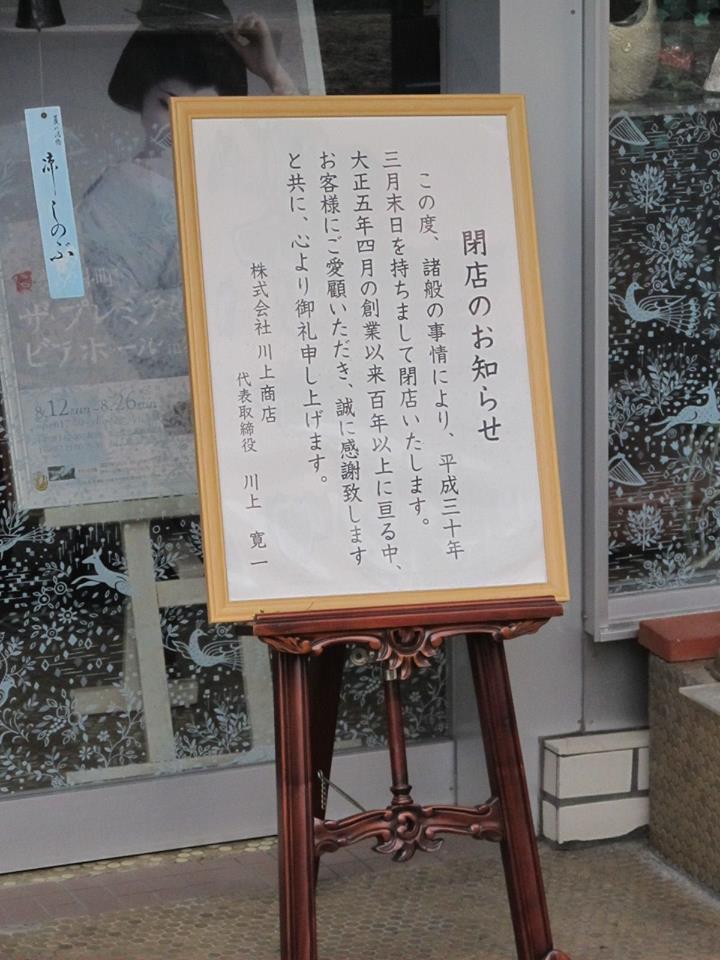 閉店のお知らせ
この度、諸般の事情により、平成三十年
三月末日を持ちまして閉店いたします。
大正五年四月の創業以来百年以上に亘る中、
お客様にご愛顧いただき、誠に感謝致します
と共に、心より御礼申し上げます。
株式会社 川上商店
代表取締役 川上 寛一
涼しのぶ
ザ・プレミアム
ビアホール
8.12 8.26